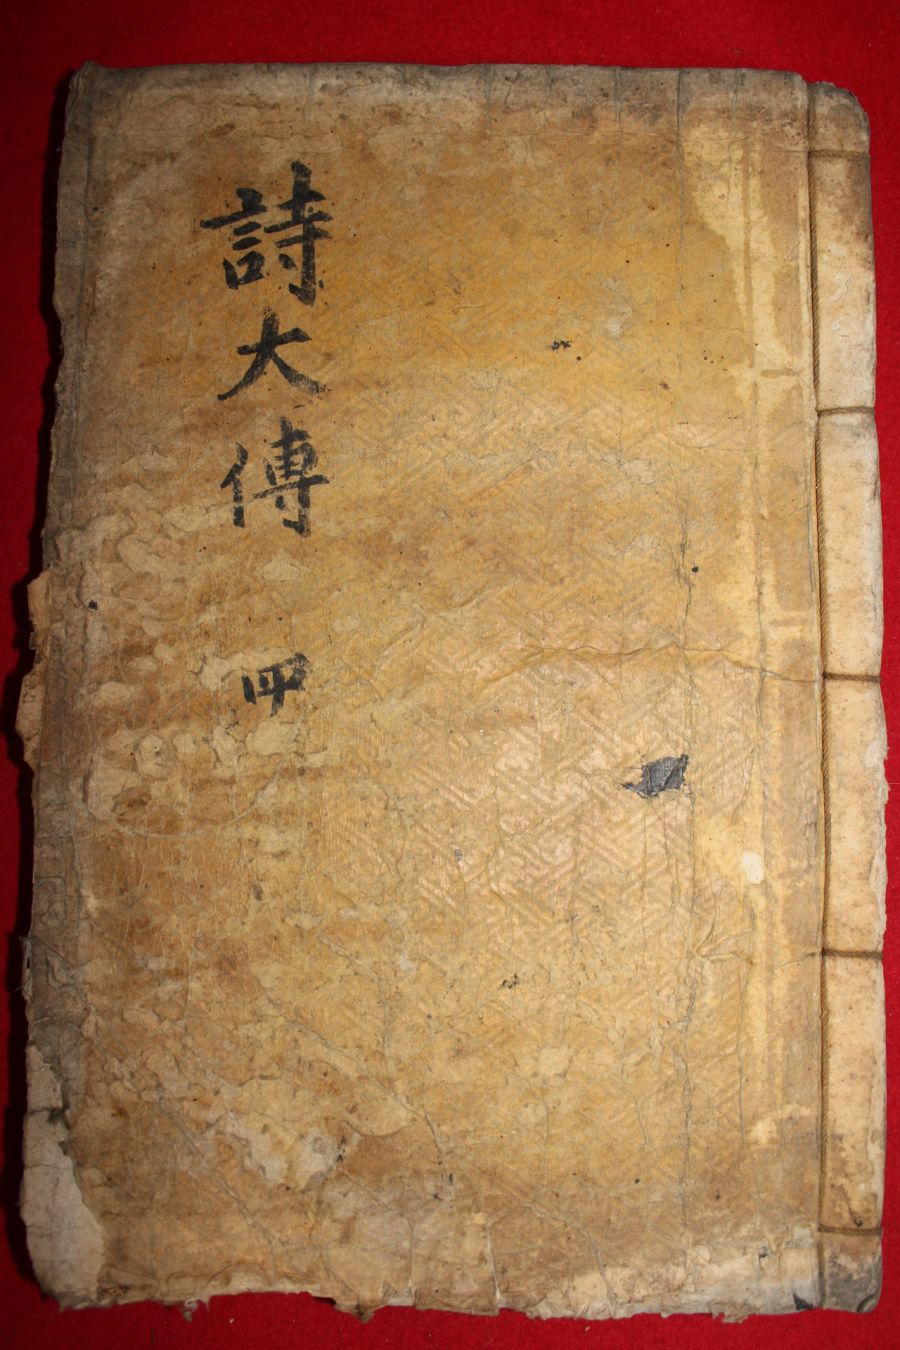 詩大傳 四